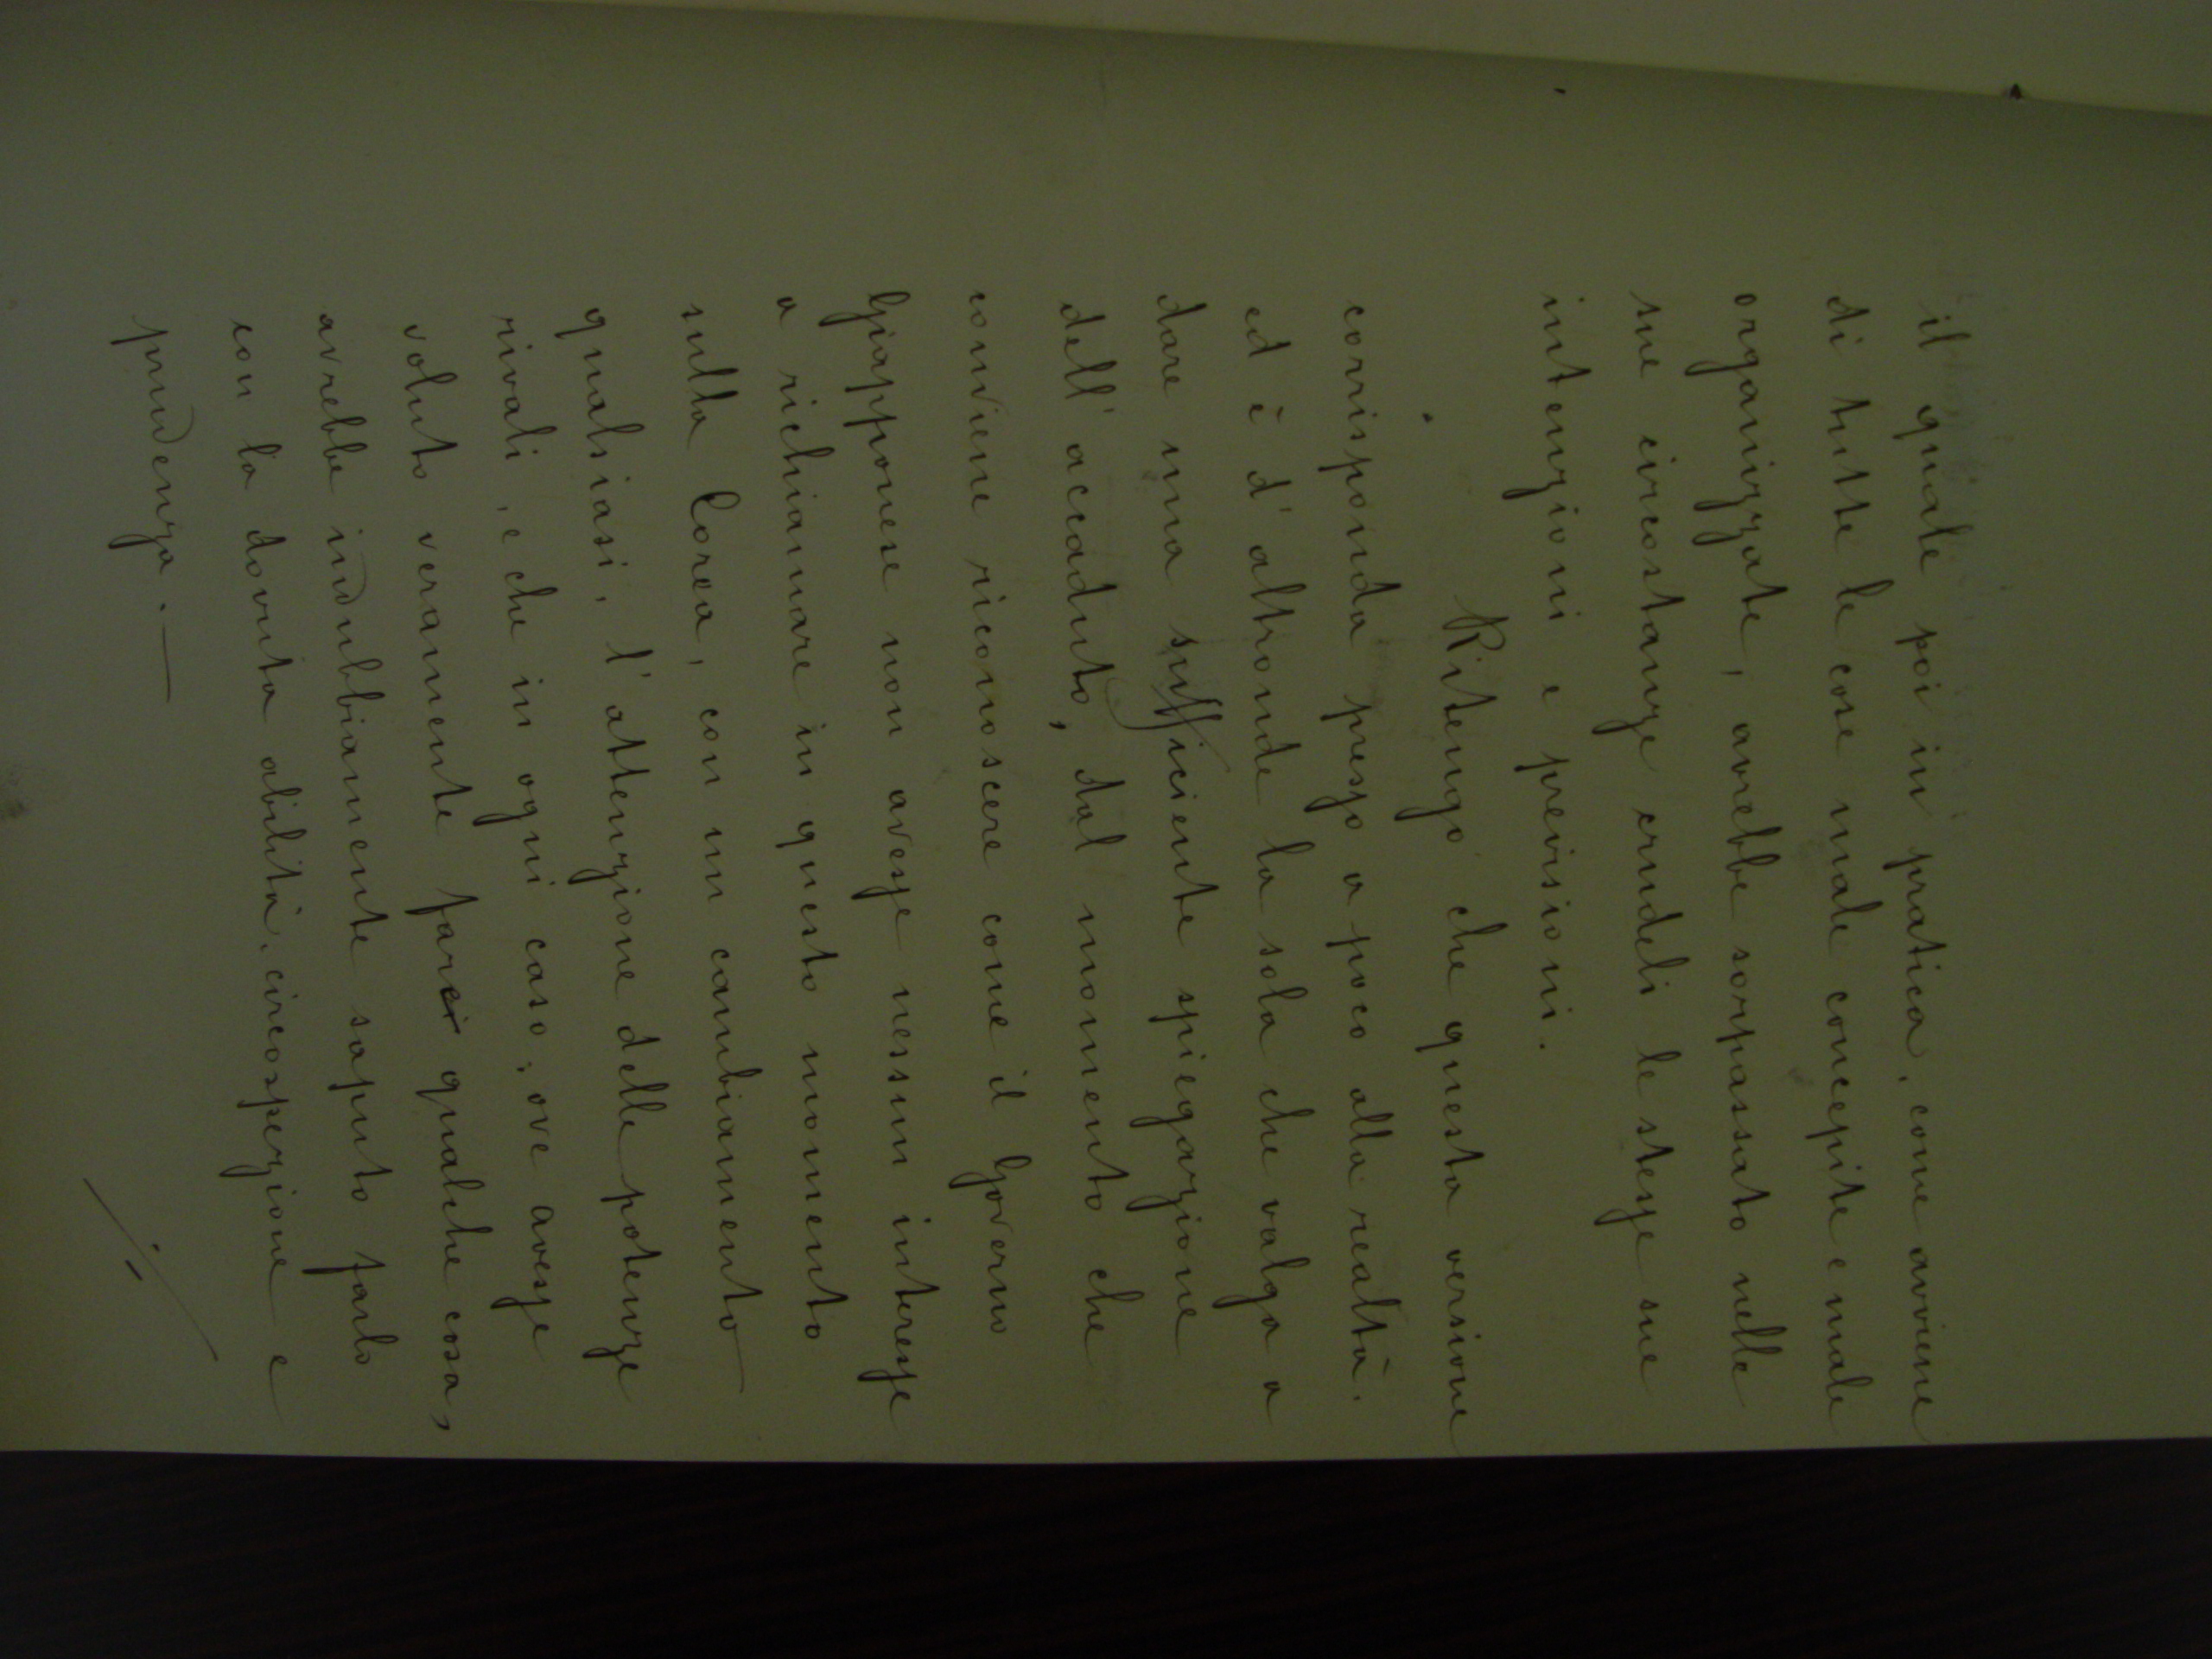 il quale poi in pratica, come avviene
di tutte le cose male concepite e male
organizzate, avrebbe sorpassato nelle
sue circostanze crudeli le stesse sue
intenzioni e previsioni.
Ritengo che questa versione
corrisponda presso a poco alla realtà.
ed è d'altronde la sola che valga a
dare una sufficiente spiegazione
dell'accaduto, dal momento che
conviene riconoscere come il Governo
Giapponese non avesse nessun interesse
a richiamare in questo momento
sulla Corea, con un cambiamento
qualsiasi, l'attenzione delle potenze
rivali, e che in ogni caso, ove avesse
voluto veramente farci qualche cosa,
avrebbe indubbiamente saputo farlo
con la dovuta abilità, circospezione e
prudenza. —